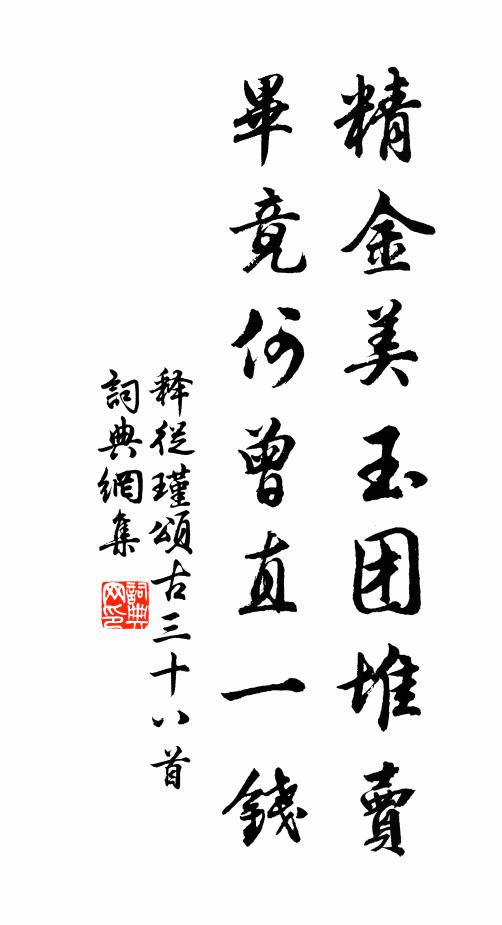 精金美玉团堆賣
畢竟何曾直一錢
释從瑾頌古三十八首
詞典網集
詞典网印